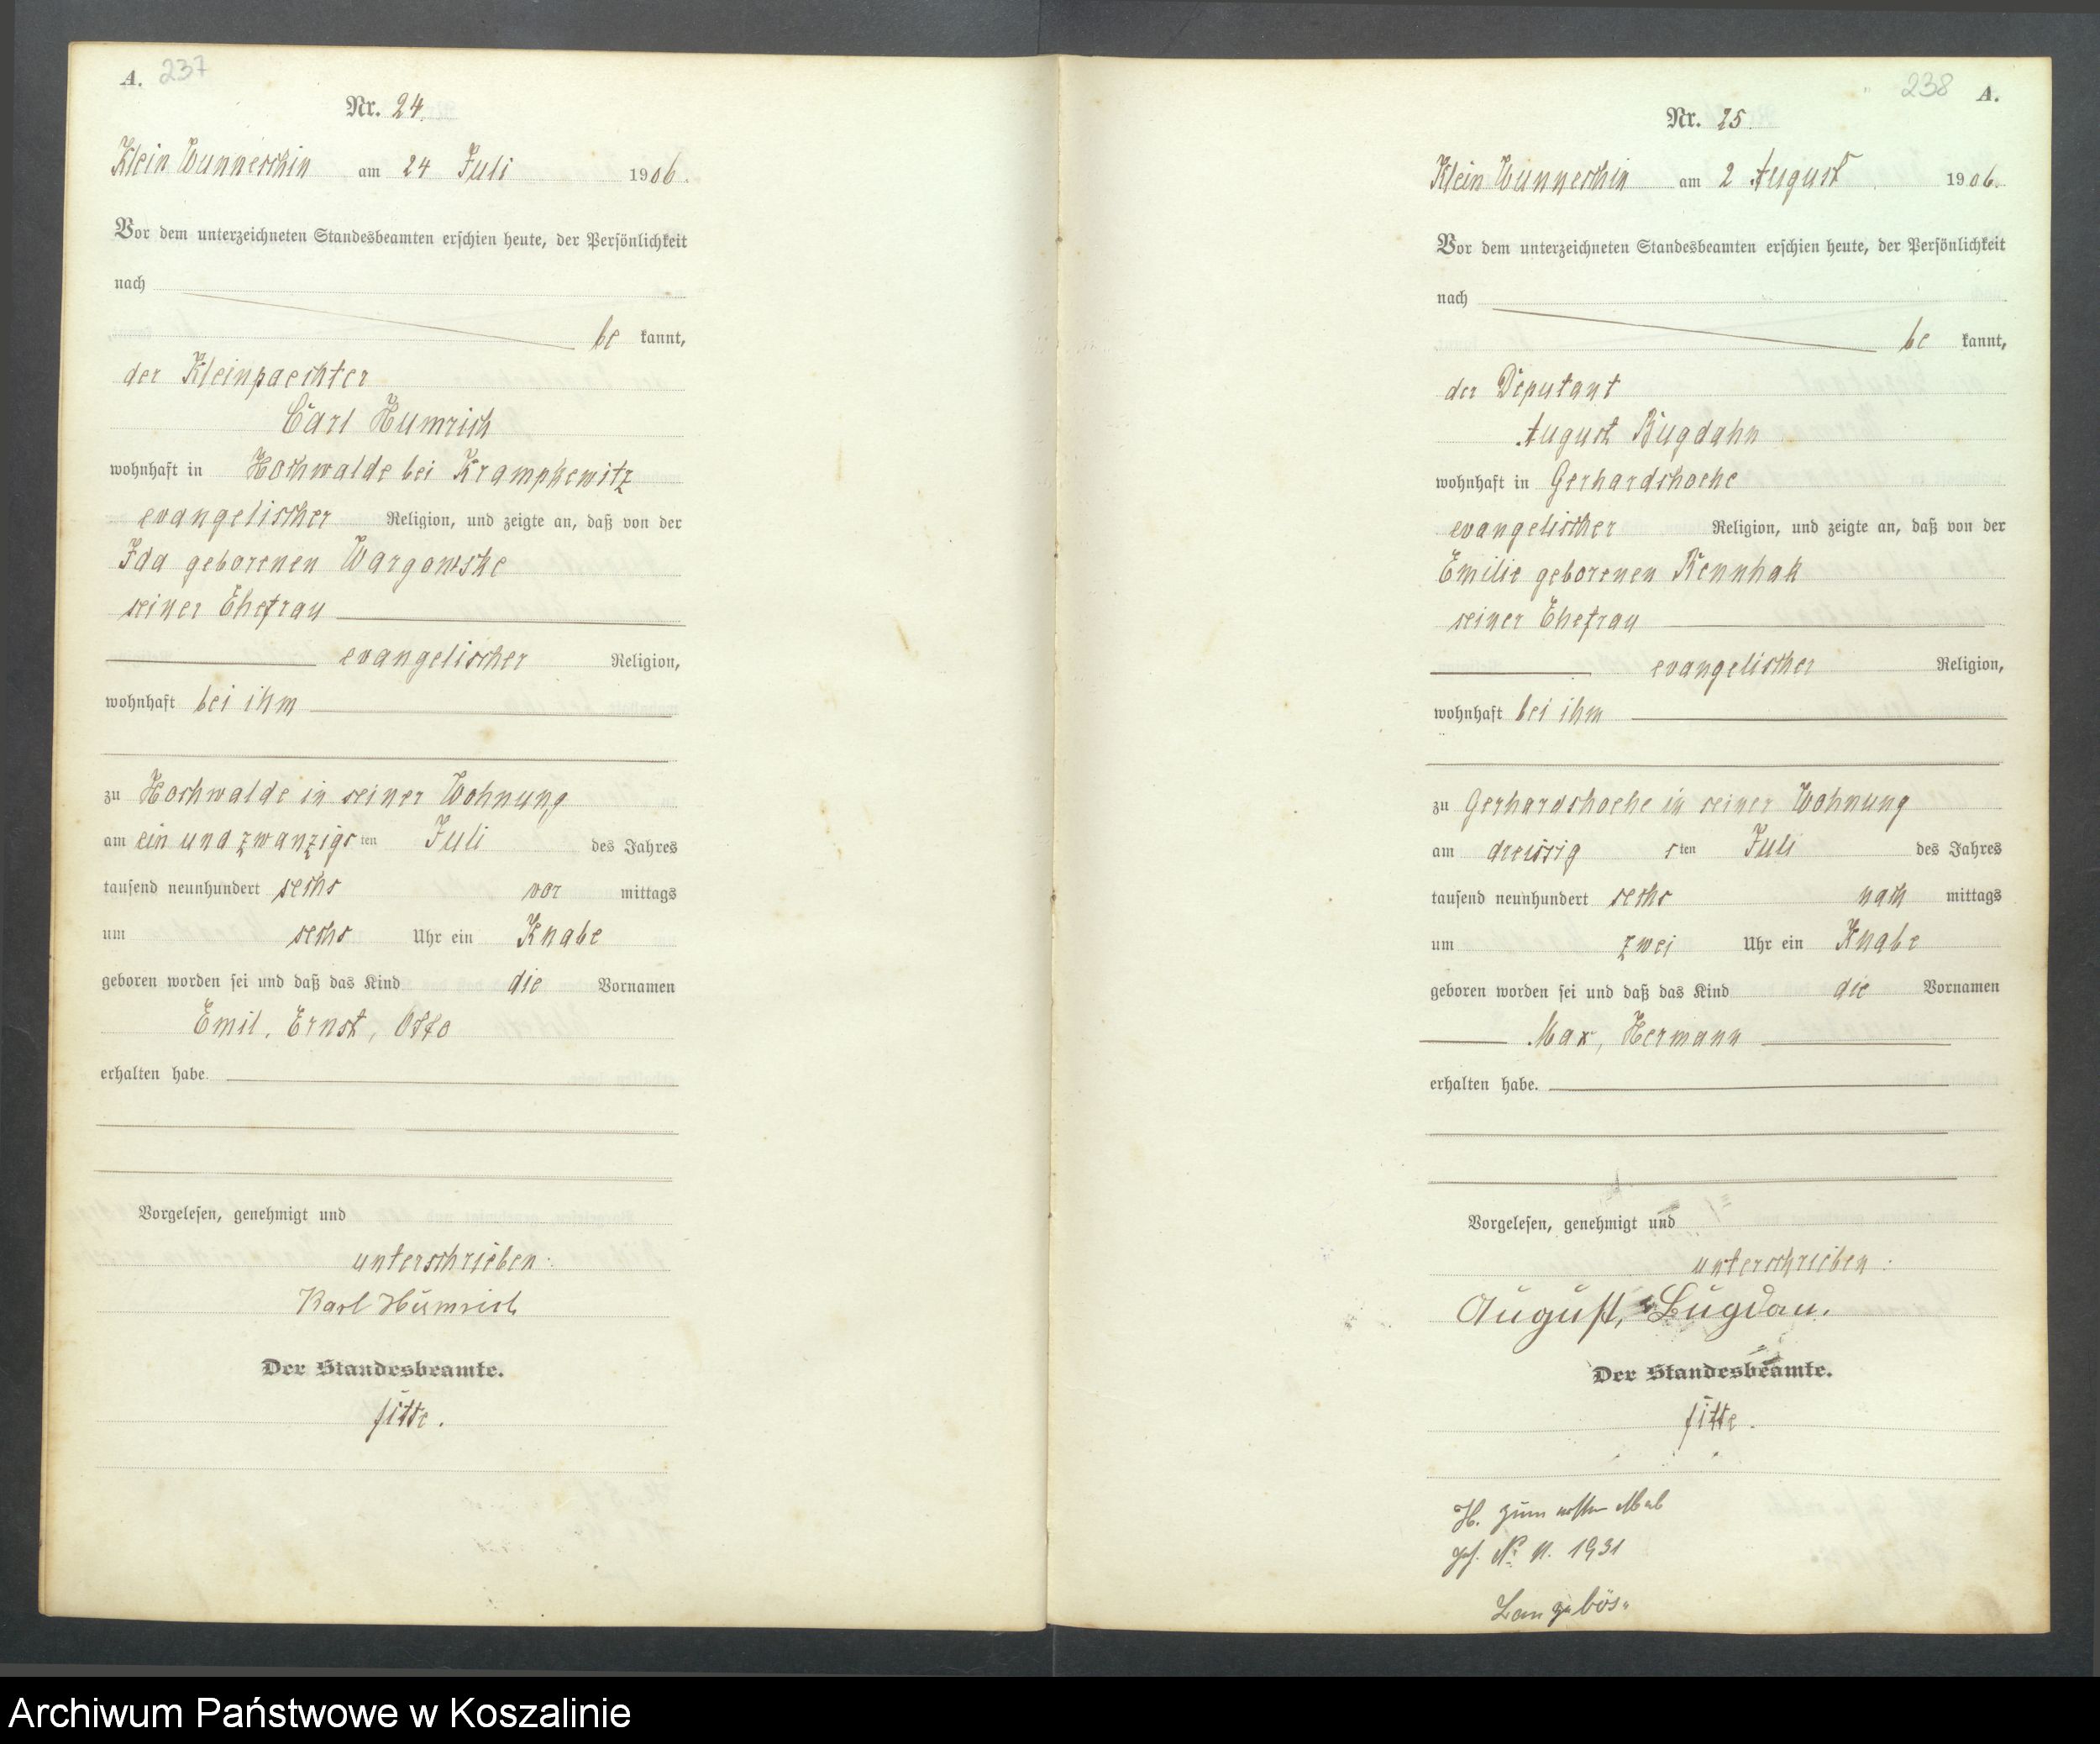 A. 237
Nr. 24.
Klein Wunneschin am 24 Juli 1906.
Vor dem unterzeichneten Standesbeamten erschien heute, der Persönlichkeit
nach
be kannt,
der Kleinpaechter
Carl Humrich
wohnhaft in Hochwalde bei Krampkewitz
evangelischer Religion, und zeigte an, daß von der
Ida geborenen Wargowske
seiner Ehefrau
evangelischer Religion,
wohnhaft bei ihm
zu Hochwalde in seiner Wohnung
am ein und zwanzigs ten Juli des Jahres
tausend neunhundert sechs vor mittags
um sechs Uhr ein Knabe
geboren worden sei und daß das Kind die Vornamen
Emil, Ernst, Otto
erhalten habe.
Vorgelesen, genehmigt und
unterschrieben:
Karl Humrich
Der Standesbeamte.
fitte.
238 A.
Nr. 25.
Klein Wunneschin am 2 August 1906.
Vor dem unterzeichneten Standesbeamten erschien heute, der Persönlichkeit
nach
be kannt,
der Deputant
August Bugdahn
wohnhaft in Gerhardshoehe
evangelischer Religion, und zeigte an, daß von der
Emilie geborenen Rennhak
seiner Ehefrau
evangelischer Religion,
wohnhaft bei ihm
zu Gerhardshoehe in seiner Wohnung
am dreissig sten Juli des Jahres
tausend neunhundert sechs nach mittags
um zwei Uhr ein Knabe
geboren worden sei und daß das Kind die Vornamen
Max, Hermann
erhalten habe.
Vorgelesen, genehmigt und
unterschrieben:
August, Bugdau.
Der Standesbeamte.
fitte.
H. zum ersten Mal
No 11. 1931
Langeböse
Archiwum Państwowe w Koszalinie